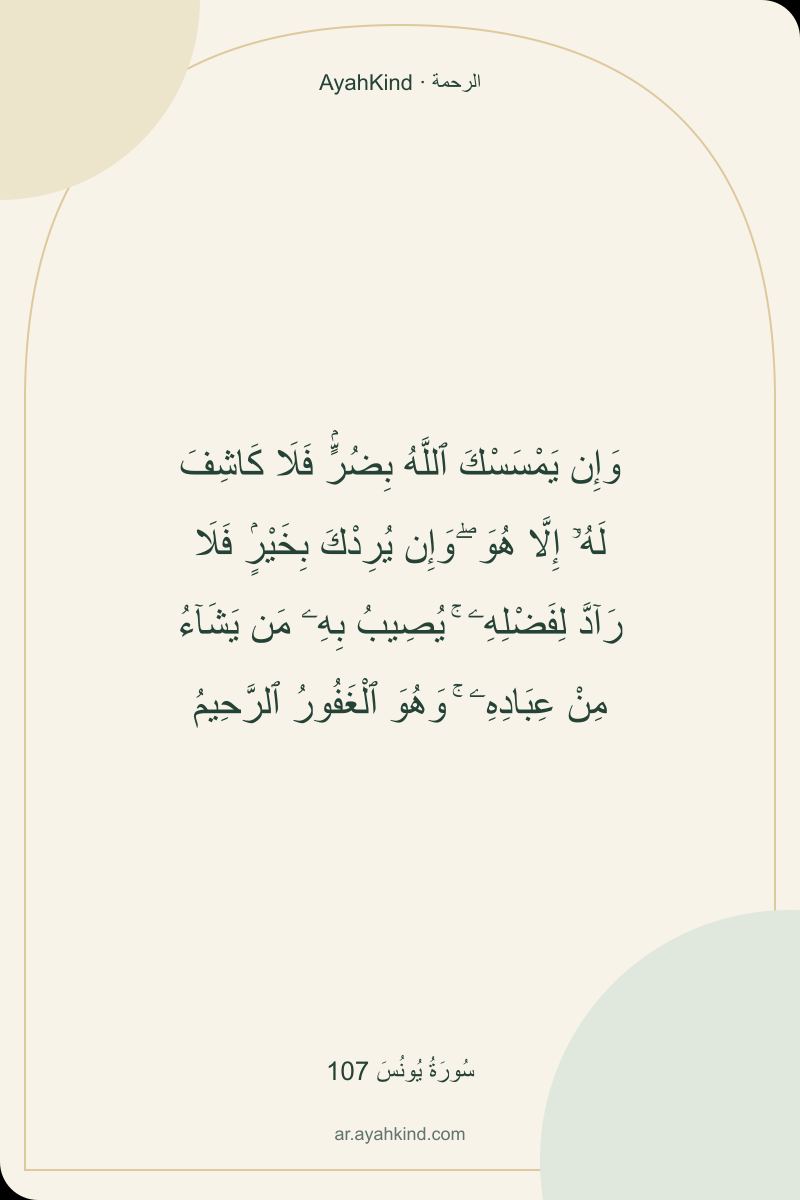 AyahKind · الرحمة
وَإِن يَمْسَسْكَ ٱللَّهُ بِضُرٍّۢ فَلَا كَاشِفَ
لَهُۥٓ إِلَّا هُوَ ۖ وَإِن يُرِدْكَ بِخَيْرٍۢ فَلَا
رَآدَّ لِفَضْلِهِۦ ۚ يُصِيبُ بِهِۦ مَن يَشَآءُ
مِنْ عِبَادِهِۦ ۚ وَهُوَ ٱلْغَفُورُ ٱلرَّحِيمُ
سُورَةُ يُونُسَ 107
ar.ayahkind.com